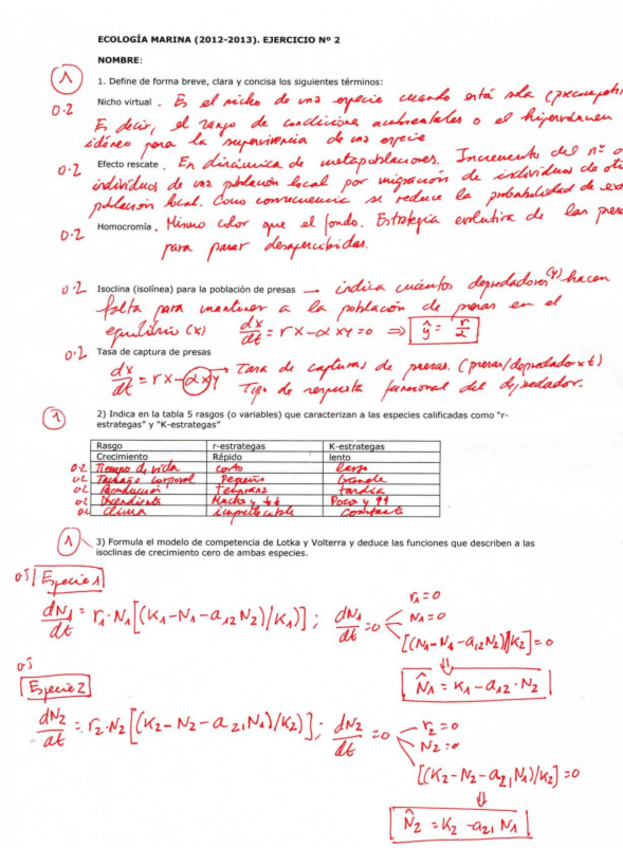 ECOLOGÍA MARINA (2012-2013). EJERCICIO Nº 2
NOMBRE:
1
1. Define de forma breve, clara y concisa los siguientes términos:
0.2 Nicho virtual. Es el nicho de una especie cuando está sola
Es decir, el rango de condiciones ambientales o el hipervolumen
idóneo para la supervivencia de una especie
0.2 Efecto rescate. En dinámica de metapoblaciones. Incremento del nº
individuos de una población local por migración de individuos de
población local. Como consecuencia se reduce la probabilidad de
0.2 Homocromía. Mismo color que el fondo. Estrategia evolutiva de las
para pasar desapercibidas.
0.2 Isoclina (isolínea) para la población de presas → indica cuántos depredadores (y) hacen
falta para mantener a la población de presas en el
equilibrio (x) dx/dt = rx - αxy = 0 ⇒ ŷ = r/α
0.2 Tasa de captura de presas
dx/dt = rx - αxy → Tasa de capturas de presas. (presas/depredador x t)
Tipo de respuesta funcional del depredador.
1
2) Indica en la tabla 5 rasgos (o variables) que caracterizan a las especies calificadas como "r-
estrategas" y "K-estrategas"
Rasgo r-estrategas K-estrategas
Crecimiento Rápido lento
0.2 Tiempo de vida corto largo
0.2 Tamaño corporal Pequeño Grande
0.2 Reproducción temprana tardía
0.2 Descendientes Mucho y ↓↓ Poco y ↑↑
0.2 clima impredecible constante
1
3) Formula el modelo de competencia de Lotka y Volterra y deduce las funciones que describen a las
isoclinas de crecimiento cero de ambas especies.
0.5 Especie 1
r₁ = 0
dN₁/dt = r₁·N₁[(K₁-N₁-a₁₂N₂)/K₁)]; dN₁/dt = 0
N₁ = 0
[(N₁-N₁-a₁₂N₂)/K₂] = 0
N̂₁ = K₁ - a₁₂·N₂
0.5
Especie 2
dN₂/dt = r₂·N₂[(K₂-N₂-a₂₁N₁)/K₂)]; dN₂/dt = 0
r₂ = 0
N₂ = 0
[(K₂-N₂-a₂₁N₁)/K₂] = 0
N̂₂ = K₂ - a₂₁ N₁